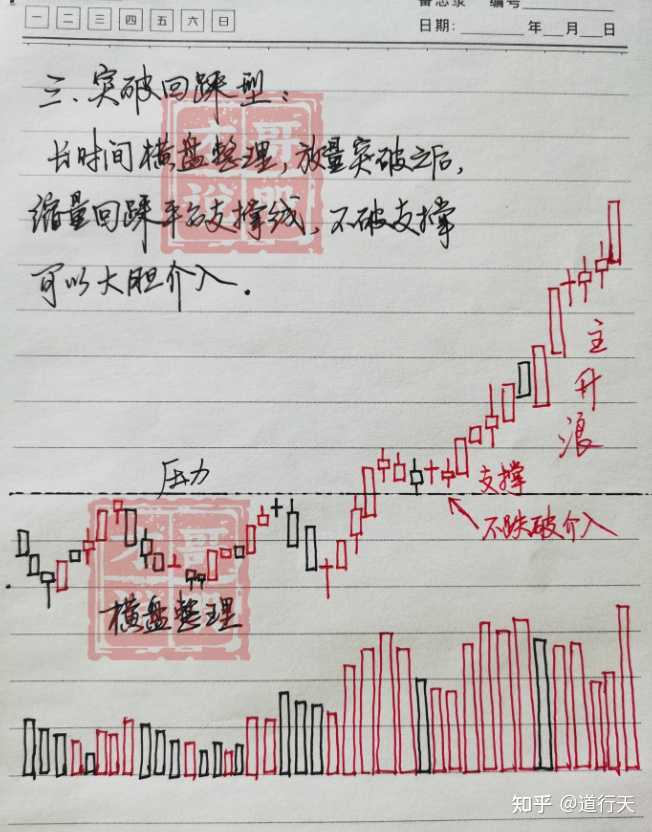 备忘录 编号
一 二 三 四 五 六 日
日期: 年 月 日
三、突破回踩型:
长时间横盘整理,放量突破之后,
缩量回踩平台支撑线,不破支撑
可以大胆介入.
主升浪
压力
支撑
不跌破介入
横盘整理
知乎 @道行天